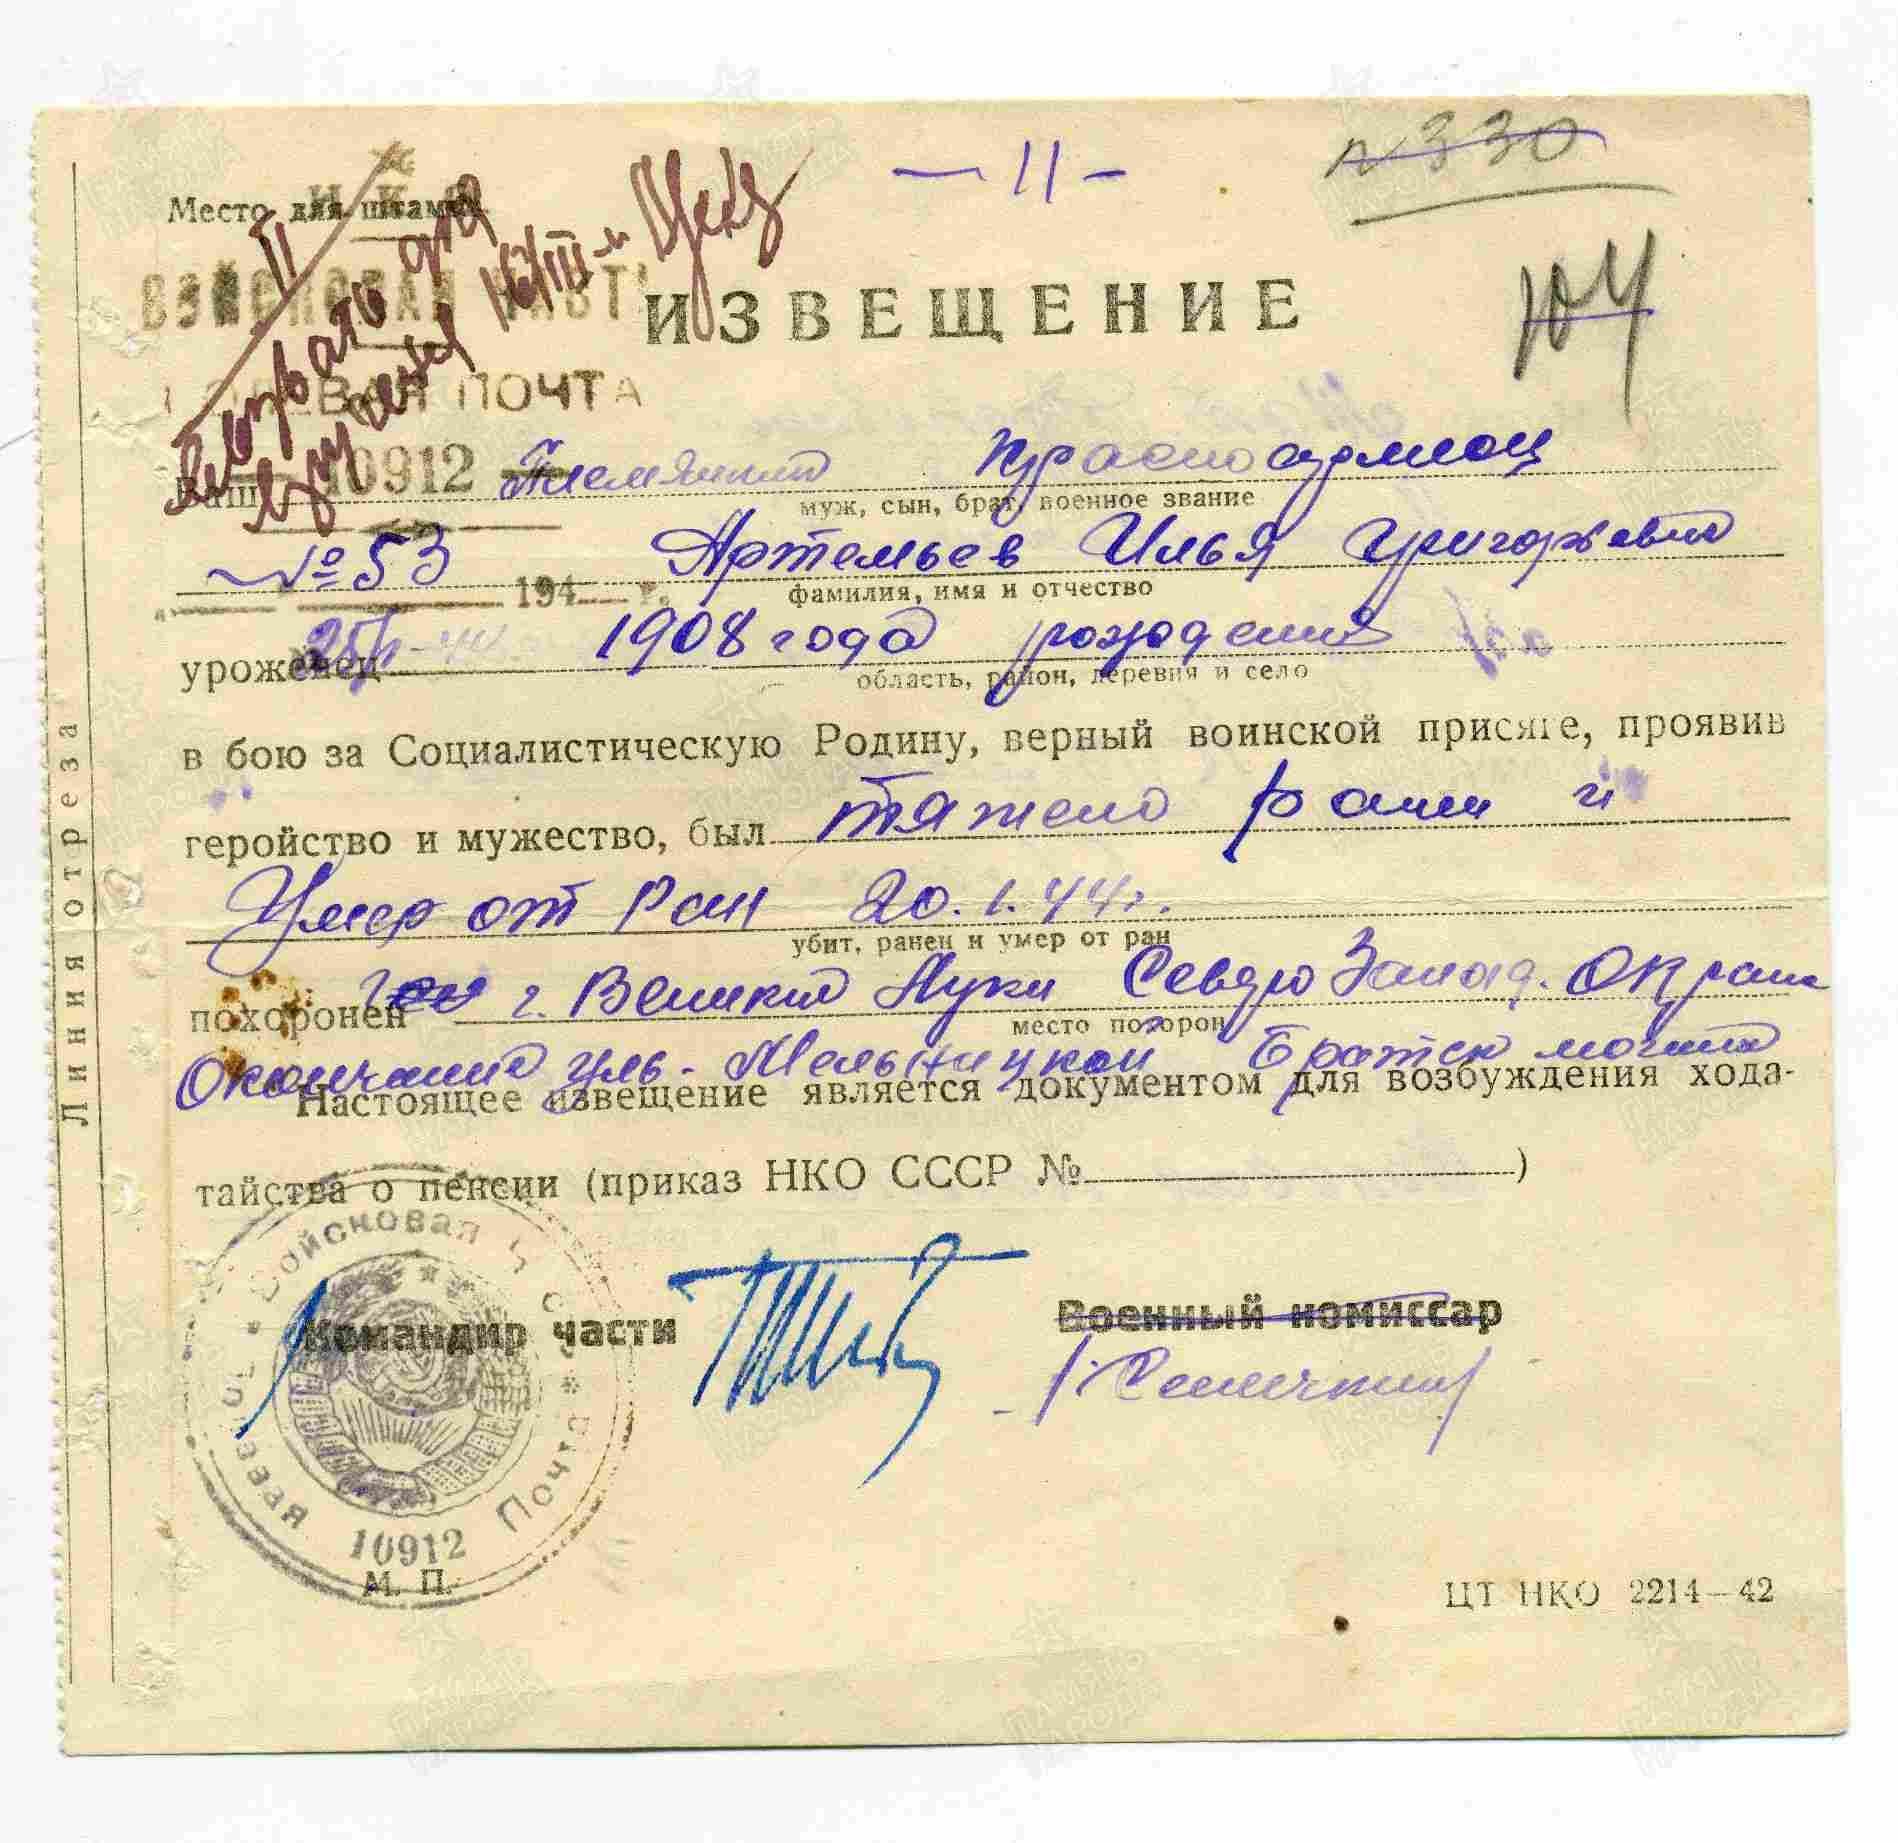 - 11 -
№ 330
104
Место для штампа
НКО
ВОЙСКОВАЯ ЧАСТЬ
ИЗВЕЩЕНИЕ
ПОЛЕВАЯ ПОЧТА
10912
16/III-
Ваш Племянник Красноармеец
муж, сын, брат, военное звание
№ 53 Артемьев Илья Григорьевич
194 г. фамилия, имя и отчество
25/I-44
уроженец 1908 года рождения
область, район, деревня и село
в бою за Социалистическую Родину, верный воинской присяге, проявив
геройство и мужество, был тяжело ранен и
Умер от Ран 20.1.44г.
убит, ранен и умер от ран
похоронен г. Великие Луки Северо Запад. Окраина
место похорон
Окончание уль. Мельницкой Братск могила
Настоящее извещение является документом для возбуждения хода-
тайства о пенсии (приказ НКО СССР № )
Войсковая Часть * Полевая Почта
Командир части
Военный комиссар
10912
М. П.
ЦТ НКО 2214—42
Линия отреза
ПАМЯТЬ НАРОДА